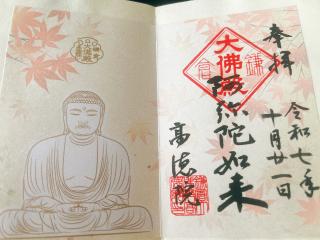 奉拝
令和七年
十月廿一日
大佛殿
鎌倉
阿弥陀如来
高徳院